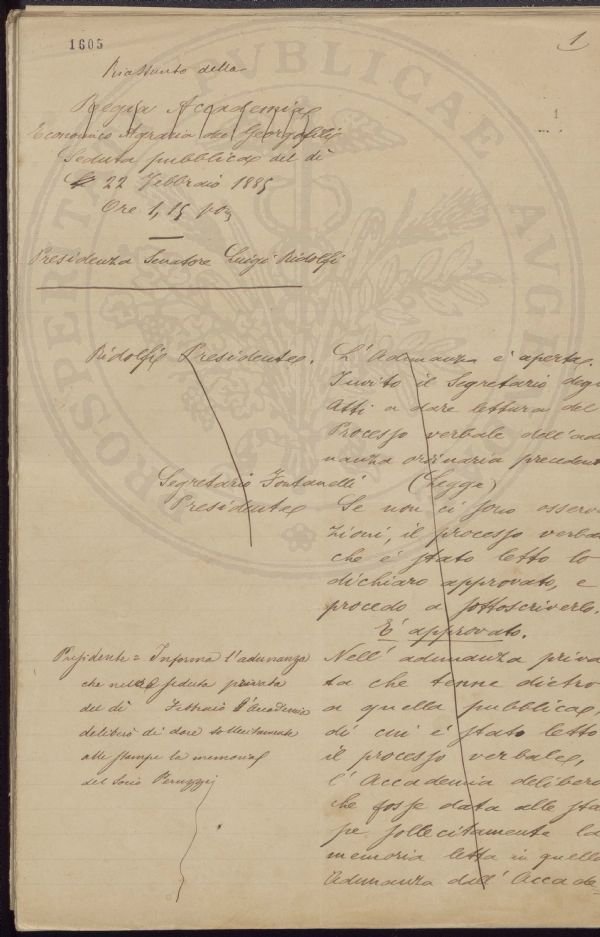 1605
1
Riassunto della
Regia Accademia
Economico Agraria dei Georgofili
Seduta pubblica del dì
22 Febbraio 1885
Ore 1,15 pom
Presidenza Senatore Luigi Ridolfi
Ridolfi Presidente.
L'Adunanza è aperta.
Invito il Segretario degli
Atti a dare lettura del
Processo verbale dell'adu
nanza ordinaria precedent
Segretario Fontanelli
(Legge)
Presidente
Se non ci sono osserv
zioni, il processo verba
che è stato letto lo
dichiaro approvato, e
procedo a sottoscriverlo.
È approvato.
Presidente = Informa l'adunanza
che nella seduta privata
del dì Febbraio l'Accademia
deliberò di dare sollecitamente
alle stampe la memoria
del Socio Peruzzi
Nell'adunanza priva
ta che tenne dietro
a quella pubblica,
di cui è stato letto
il processo verbale,
l'Accademia deliberò
che fosse data alle sta
pe sollecitamente la
memoria letta in quella
Adunanza dall'Accade-
PROSPERITATI PUBLICAE AUGENDAE